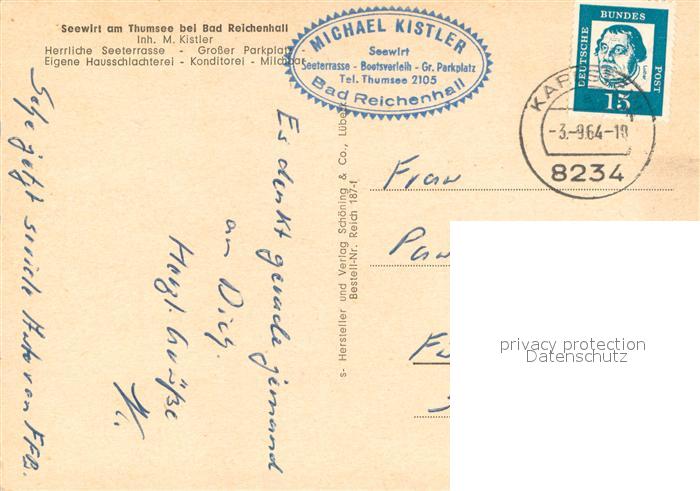 Seewirt am Thumsee bei Bad Reichenhall
Inh. M. Kistler
Herrliche Seeterrasse - Großer Parkplatz
Eigene Hausschlachterei - Konditorei - Milchbar
MICHAEL KISTLER
Seewirt
Seeterrasse - Bootsverleih - Gr. Parkplatz
Tel. Thumsee 2105
Bad Reichenhall
DEUTSCHE BUNDES POST
Luther
15
-3.-9.64-18
8234
Es denkt gerade jemand
an Dich.
Herzl. Grüße
Sehe jetzt soviele Autos von FFB.
s- Hersteller und Verlag Schöning & Co., Lübeck
Bestell-Nr. Reich 187-f
Frau
privacy protection
Datenschutz